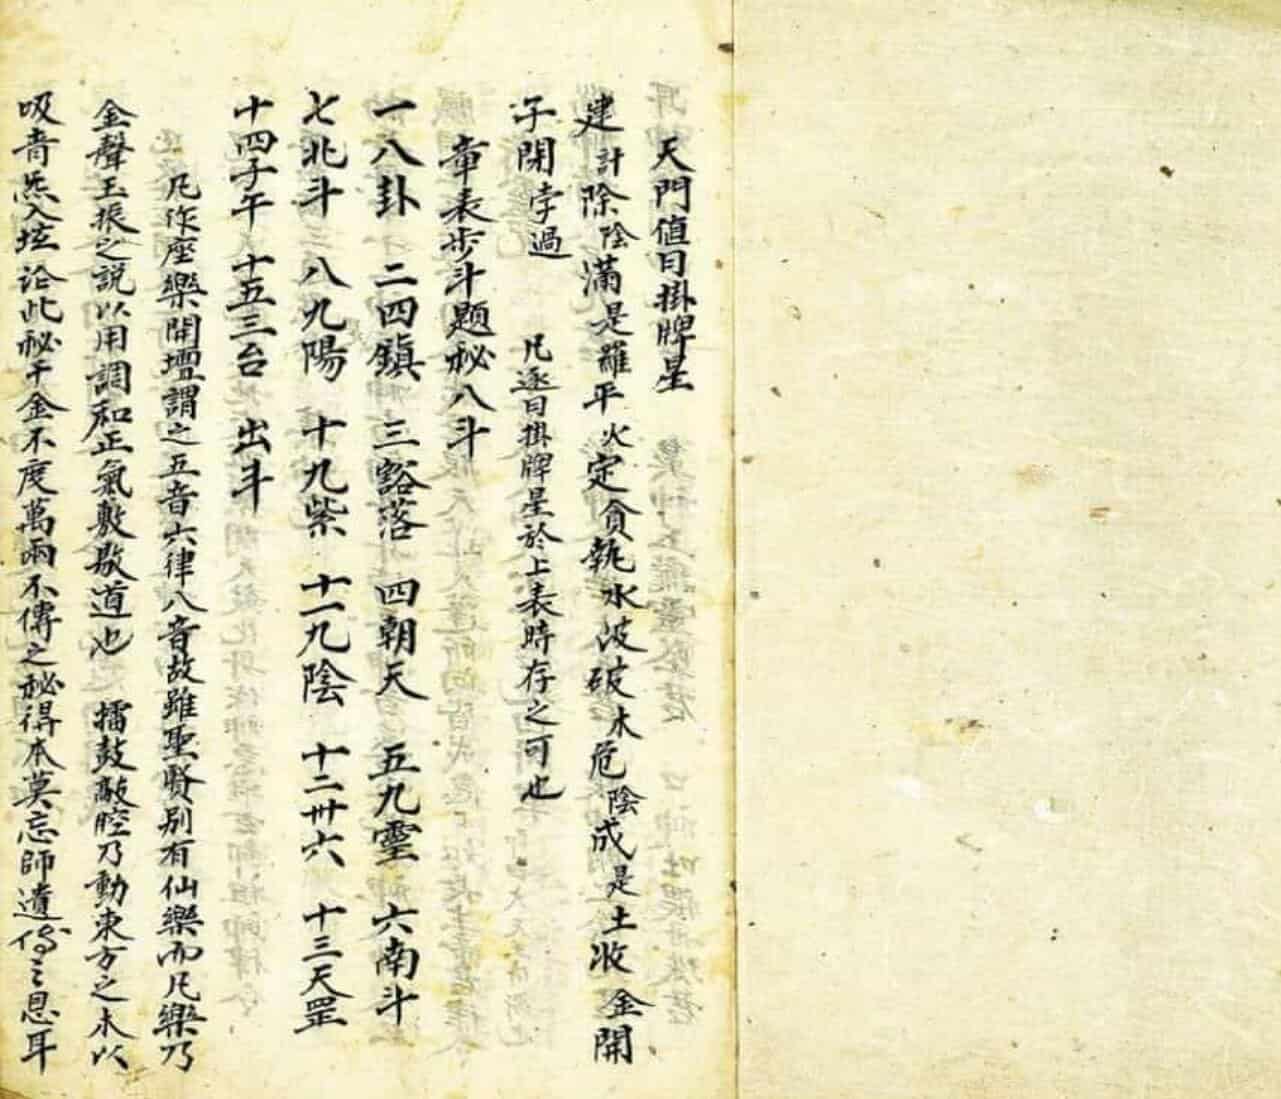 天門值日掛牌星
建計除陰滿是羅平火定貪執水破木危陰成是土收金開
字閉孛過　凡逐日掛牌星於上表時存之可也
章表步斗題秘八斗
一八卦　二四鎮　三豁落　四朝天　五九靈　六南斗
七北斗　八九陽　十九紫　十一九陰　十二卅六　十三天罡
十四子午　十五三台　出斗
凡作座樂開壇謂之五音六律八音故雖聖賢別有仙樂而凡樂乃
金聲玉振之說以用調和正氣敷敭道也　擂鼓敲腔乃動東方之木以
吸音炁入壇論此秘千金不度萬兩不傳之秘得本莫忘師遺傳之恩耳